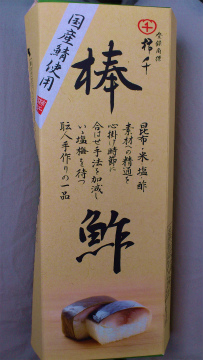 国産鯖使用
千
登録商標
招千
棒鮓
昆布・米・塩・酢
素材への精通を
心掛け時節に
合はせ手法を加減し
いい塩梅を待つ
職人手作りの一品